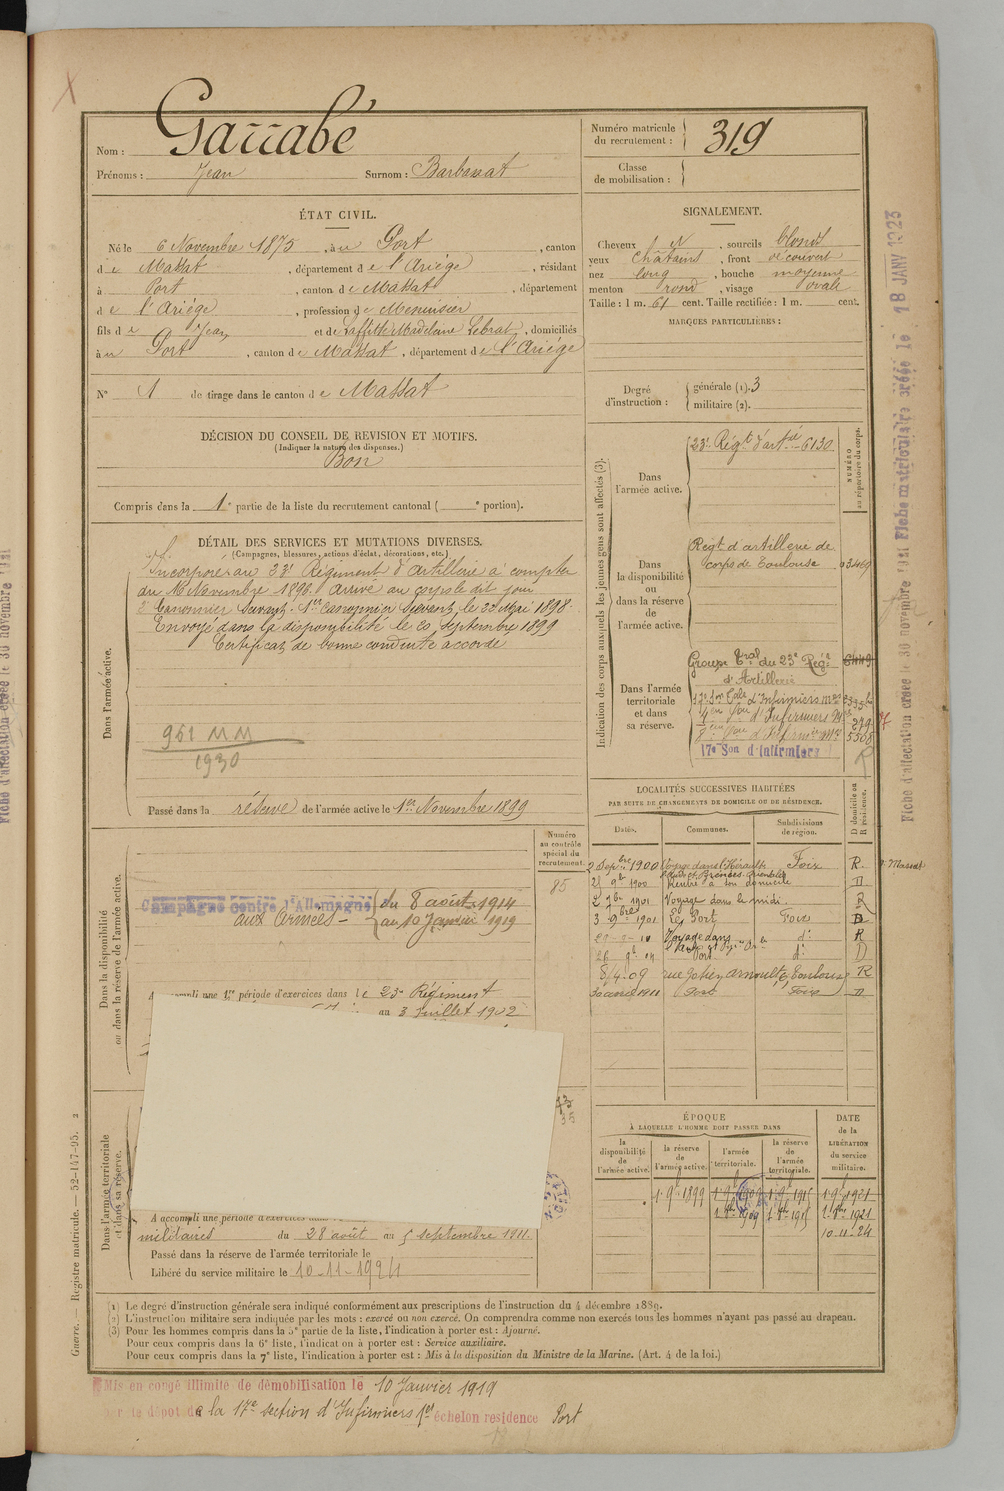 Nom : Garrabé
Prénoms : Jean Surnom : Barbassat
Numéro matricule du recrutement : 319
Classe de mobilisation :
ÉTAT CIVIL.
Né le 6 Novembre 1875, à u Port, canton
d e Massat, département d e l'Ariège, résidant
à Port, canton d e Massat, département
d e l'Ariège, profession d e Menuisier
fils d e Jean et de Laffitte Madeleine Lebrat, domiciliés
à u Port, canton d e Massat, département d e l'Ariège
N° 1 de tirage dans le canton d e Massat
DÉCISION DU CONSEIL DE REVISION ET MOTIFS.
(Indiquer la nature des dispenses.)
Bon
Compris dans la 1e partie de la liste du recrutement cantonal ( e portion).
SIGNALEMENT.
Cheveux N, sourcils blonds
yeux chatains, front découvert
nez long, bouche moyenne
menton rond, visage ovale
Taille : 1 m. 61 cent. Taille rectifiée : 1 m. cent.
MARQUES PARTICULIÈRES :
Degré d'instruction : générale (1). 3
militaire (2).
DÉTAIL DES SERVICES ET MUTATIONS DIVERSES.
(Campagnes, blessures, actions d'éclat, décorations, etc.)
Dans l'armée active.
Incorporé au 23e Régiment d'artillerie à compter
du 16 Novembre 1896. arrivé au corps le dit jour
2e Canonnier Servant. 1er Canonnier Servant le 22 Mai 1898.
Envoyé dans la disponibilité le 20 Septembre 1899
Certificat de bonne conduite accordé
961 MM
1930
Passé dans la réserve de l'armée active le 1er Novembre 1899
Indication des corps auxquels les jeunes gens sont affectés (3).
NUMÉRO au répertoire du corps.
Dans l'armée active.
23e Régt d'artie 6130
Dans la disponibilité ou dans la réserve de l'armée active.
Régt d'artillerie de
corps de Toulouse 03449
Dans l'armée territoriale et dans sa réserve.
Groupe Tral du 23e Régt
d'Artillerie
17e Son d'infirmiers
LOCALITÉS SUCCESSIVES HABITÉES
PAR SUITE DE CHANGEMENTS DE DOMICILE OU DE RÉSIDENCE.
Dates. Communes. Subdivisions de région. D domicile ou R résidence.
2 Sepbre 1900 Voyage dans l'Hérault Foix R. Massat
21 9b 1900 Rentré à son domicile D
2 7b 1901 Voyage dans le midi. R
3 9bre 1901 Le Port Foix D
Voyage dans d° R
Port d° D
8/4-09 rue Toulouse R
30 avril 1911 Port Foix D
Dans la disponibilité ou dans la réserve de l'armée active.
Numéro au contrôle spécial du recrutement.
85
Campagne contre l'Allemagne du 8 août 1914
aux Armées - au 10 Janvier 1919
A accompli une 1re période d'exercices dans le 23e Régiment
au 3 Juillet 1902
Dans l'armée territoriale et dans sa réserve.
A accompli une période d'exercices dans
militaires du 28 août au 5 septembre 1911.
Passé dans la réserve de l'armée territoriale le
Libéré du service militaire le 10-11-1924
ÉPOQUE
À LAQUELLE L'HOMME DOIT PASSER DANS
la disponibilité de l'armée active. la réserve de l'armée active. l'armée territoriale. la réserve de l'armée territoriale.
DATE de la LIBÉRATION du service militaire.
1 9b 1899 1 9b 1909 1 9b 1915 1 9b 1921
10-11-24
(1) Le degré d'instruction générale sera indiqué conformément aux prescriptions de l'instruction du 4 décembre 1889.
(2) L'instruction militaire sera indiquée par les mots : exercé ou non exercé. On comprendra comme non exercés tous les hommes n'ayant pas passé au drapeau.
(3) Pour les hommes compris dans la 5e partie de la liste, l'indication à porter est : Ajourné.
Pour ceux compris dans la 6e liste, l'indication à porter est : Service auxiliaire.
Pour ceux compris dans la 7e liste, l'indication à porter est : Mis à la disposition du Ministre de la Marine. (Art. 4 de la loi.)
Guerre. — Registre matricule. — 52-147-95. 2
Mis en congé illimité de démobilisation le 10 Janvier 1919
par le dépot de la 17e section d'Infirmiers 1er échelon residence Port
Fiche d'affectation créée le 30 novembre 1921 Fiche matriculaire créée le 18 JANV 1923
Fiche d'affectation créée le 30 novembre 1921